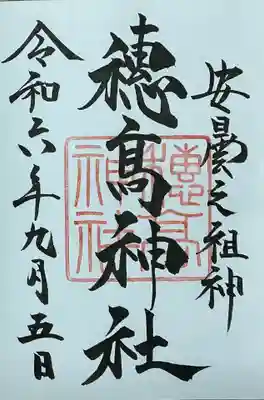 安曇之祖神
穂髙神社
穂高神社
令和六年九月五日